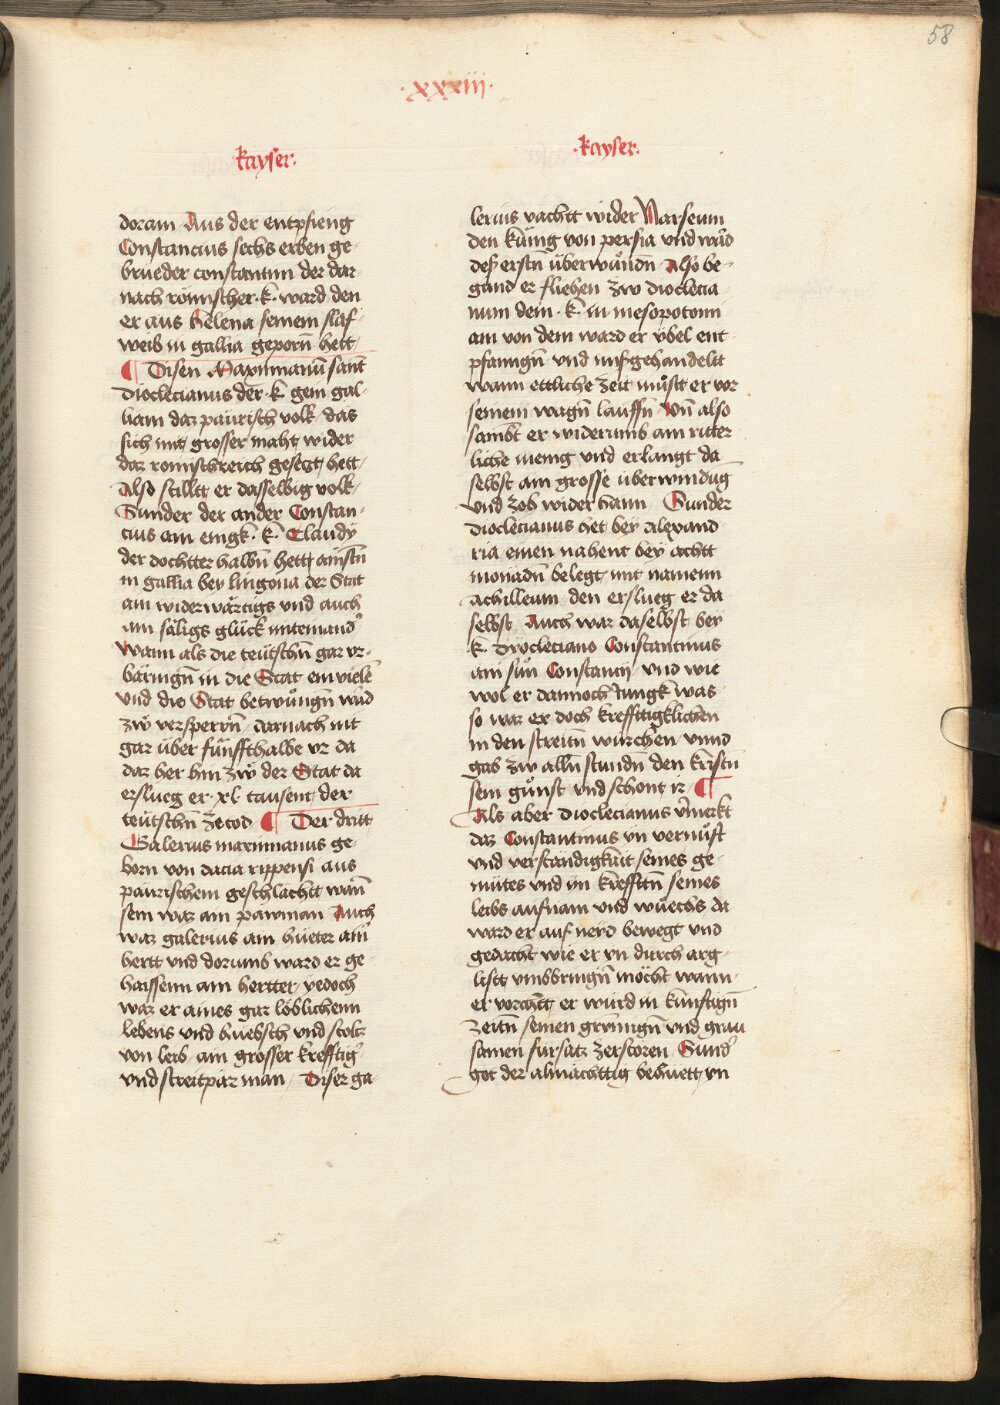 58
·xxxiii·
kayser·
doram Aus der entpfieng
Constancius sechs erben ge-
brueder constantin der dar
nach römischer ·k· ward den
er aus Helena seinem slaf-
weib in gallia geporn̄ hett
¶ Disen Maximianū sant
Dioclecianus der ·k· gein gal-
liam daz päurisch volk das
sich mit grosser maht wider
daz romischreich gesetzt hett
Also stilltt er dasselbig volk
Sunder der ander Constan-
cius ain enigk· k· Claudÿ
der dochtter halbn̄ hett ainstn̄
in gallia bey lingona der Stat
ain widerwärtigs und auch
ain säligs glück miteinand
wann als die teütschn̄ gar vr-
bäringn̄ in die Stat einvielē
vnd die Stat betwůngn̄ wūd
zw̄ versperrn̄ darnach nit
gar über fünffthalbe vr da
dar her hin zw̄ der Stat da
erslueg er xl tausent der
teütschn̄ zetod ¶ Der dritt
Galerius maximianus ge
born von dacia rippensi aus
päurischem geschlächtt wān
sein waz ain pawrnan Auch
waz galerius ain hüeter ain̄
hertt und dorumb ward er ge-
haissenn ain hertter yedoch
waz er aines gar löblichenn
lebens vnd huebsch vnd stoltz
von leib ain grosser krefftig
vnd streitpär man Diser ga
·kayser·
lerius vachtt wider Narseum
den küng von persia vnd wūd
deß erstn̄ überwůndn̄ Also be-
gand er fliehen zw dioclecia
num dem ·k· in mesopotoni
am von dem ward er übel ent
pfanngn̄ vnd mißgehandeltt
wann ettliche zeit můstt er vor
seinem wagn̄ lauffn̄ Vn̄ also
sambt er widerumb ain ritter
liche menig vnd erlangt da
selbst ain grosse überwindūg
vnd zoh wider haim Sunder
dioclecianus het bey alexand
ria einen nahent bey achtt
monadn̄ belegt mit namenn
achilleum den erslueg er da
selbst Auch war daselbst bey
k· Dyocleciano Constantinus
ain sun̄ Constancÿ vnd wie
wol er dannoch iungk was
so waz er doch krefftigklichen
in den streitn̄ würchen vnnd
gab zw alln̄ stundn̄ den kristn̄
sein gunst vnd schont ir ¶
Als aber dioclecianus v̄merkt
daz Constantinus vn vernüft
vnd verständigkait seines ge-
mütes vnd im krefftn̄ seines
leibs aufnam vnd wuechs da
ward er auf neyd bewegt vnd
gedacht wie er yn durch arg-
listt vmbbringn̄ möcht wann
er vorchtt er würd in künftign̄
zeitn̄ seinen grymign̄ vnd grau
samen fürsatz zerstoren Sund
got der almächttig behuett yn